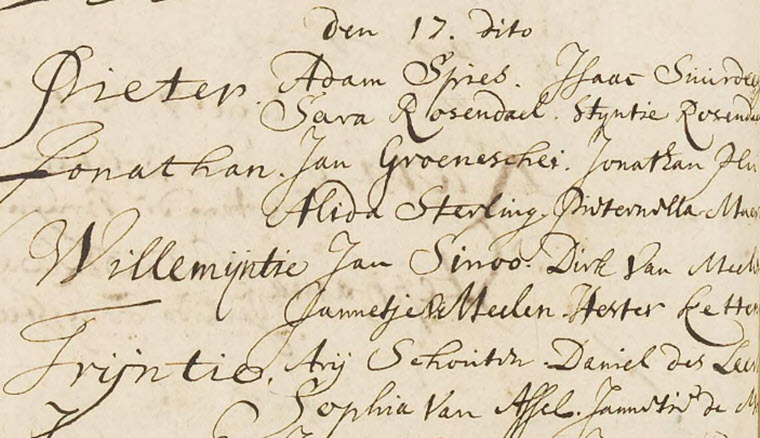 den 17. dito
Pieter. Adam Spies. Isaac
Sara Rosendael. Styntie
Jonathan. Jan Groeneschei. Jonathan
Alida Sterling. Pieternella
Willemijntie Jan Sinoo. Dirk Van
Jannetje V: Meelen. Hester
Trijntie. Arij Schouten. Daniel des
Sophia Van Assel. Jannetie de